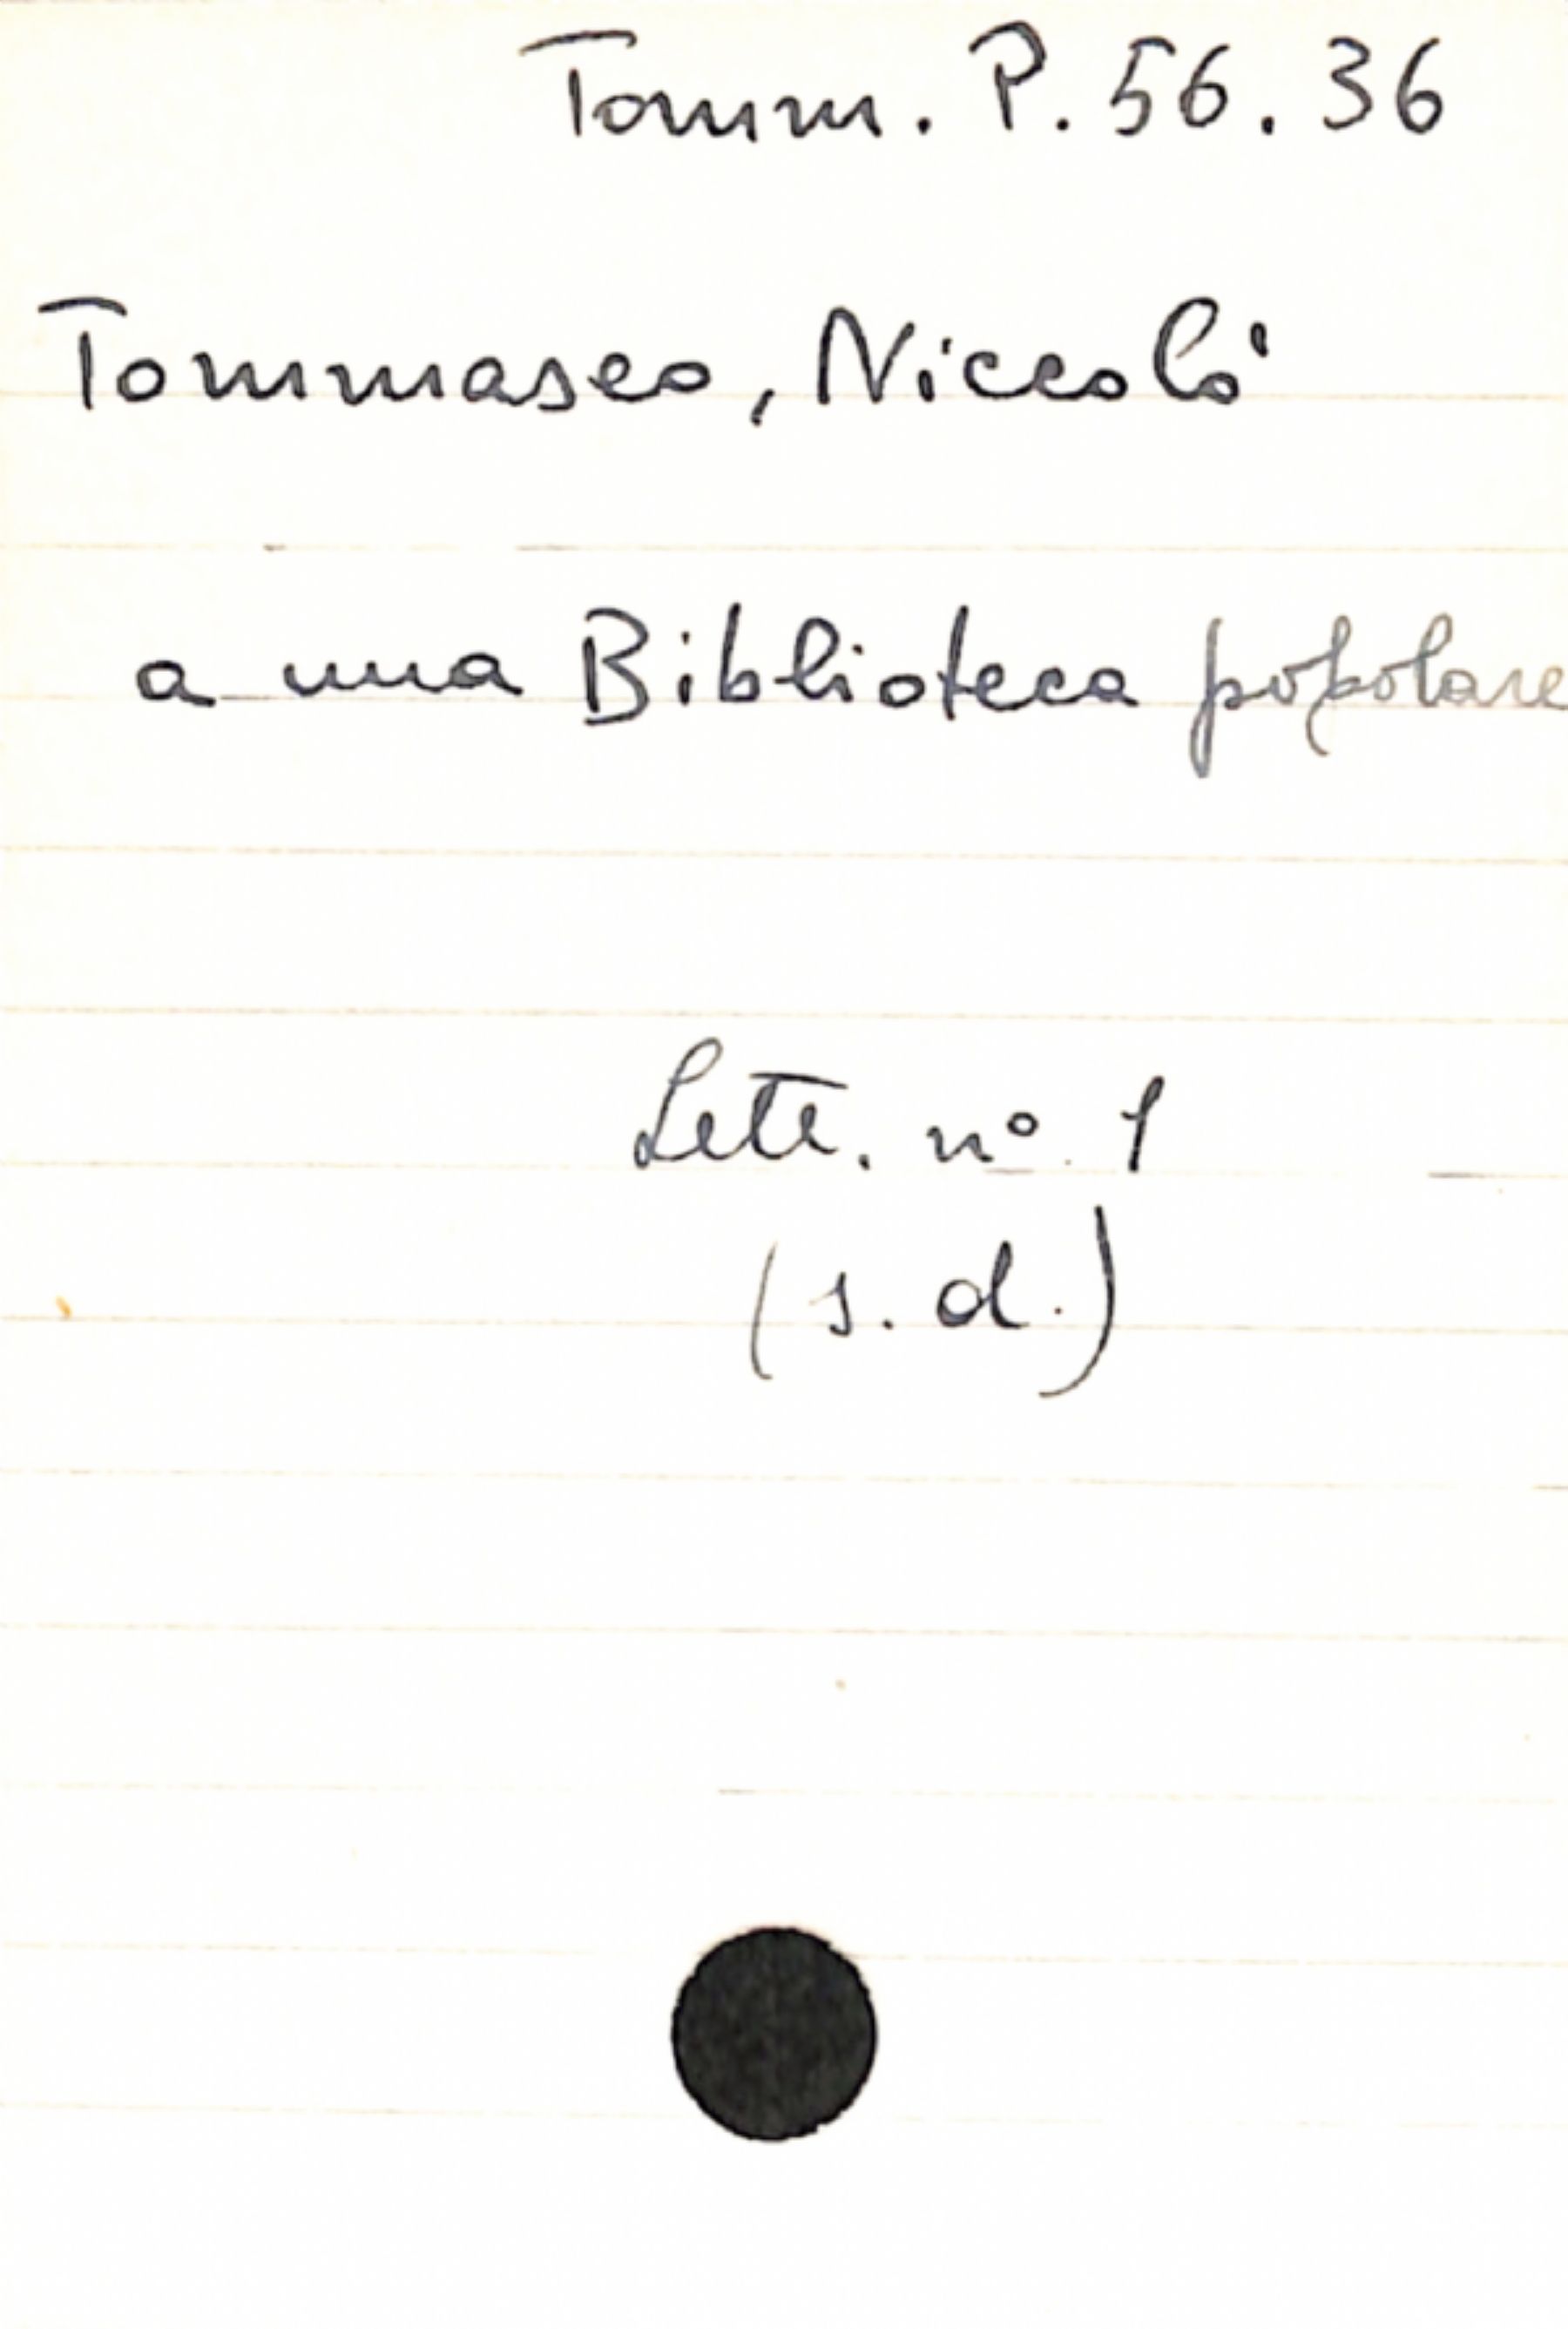 Tomm. P. 56. 36
Tommaseo, Niccolò
a una Biblioteca popolare
Lett. nº 1
(s. d.)